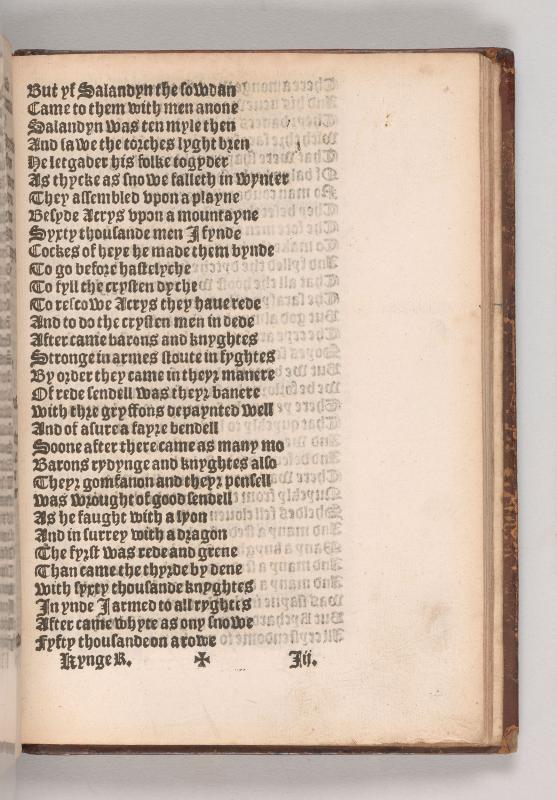 But yf Salandyn the sowdan
Came to them with men anone
Salandyn was ten myle then
And sawe the torches lyght bren
He let gader his folke togyder
As thycke as snowe falleth in wynter
They assembled vpon a playne
Besyde Acrys vpon a mountayne
Syxty thousande men I fynde
Cockes of heye he made them bynde
To go before hastelyche
To fyll the crysten dyche
To rescowe Acrys they haue rede
And to do the crysten men in dede
After came barons and knyghtes
Stronge in armes stoute in fyghtes
By order they came in theyr manere
Of rede sendell was theyr banere
with thre gryffons depaynted well
And of asure a fayre bendell
Soone after there came as many mo
Barons rydynge and knyghtes also
Theyr gomfanon and theyr pensell
was wrought of good sendell
As he faught with a lyon
And in surrey with a dragon
The fyrst was rede and grene
Than came the thyrde by dene
with syxty thousande knyghtes
In ynde I armed to all ryghtes
After came whyte as ony snowe
Fyfty thousande on a rowe
Kynge R. ✠ Iij.